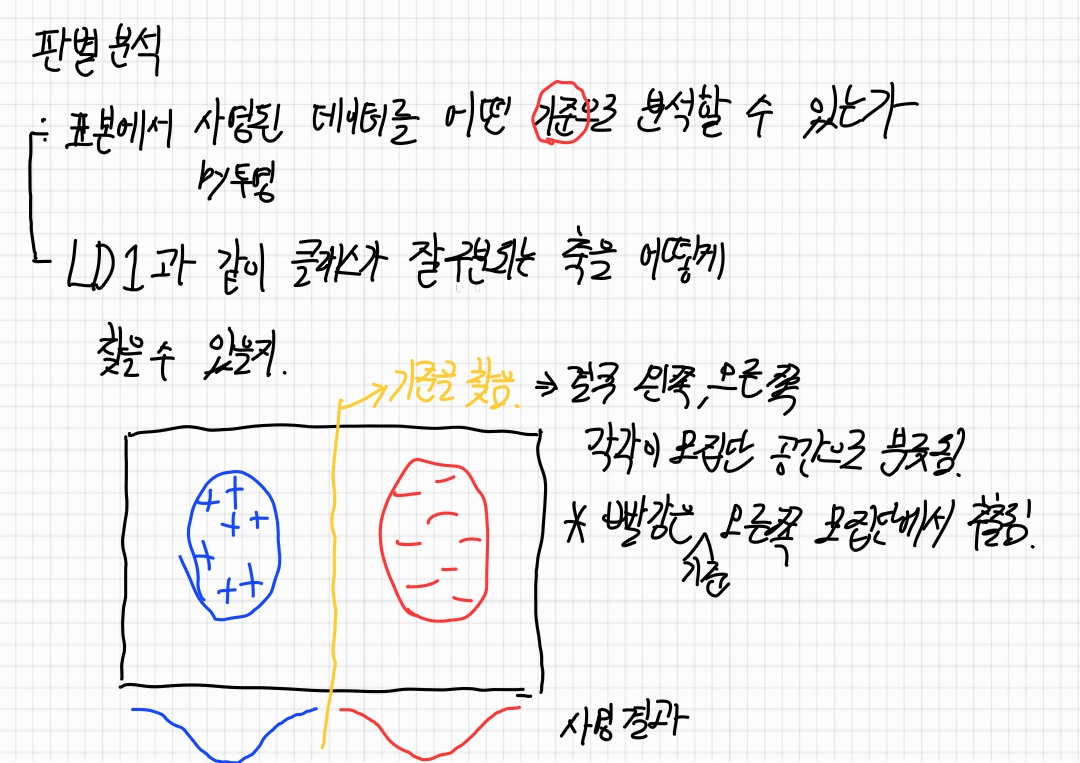 판별분석
: 표본에서 사영된 데이터를 어떤 기준으로 분석할 수 있는가
by 투영
LD1과 같이 클래스가 잘 구분되는 축을 어떻게
찾을 수 있을지.
기준을 찾음. ⇒ 결국 왼쪽, 오른쪽
각각이 모집단 공간으로 분류됨.
* 빨강은 오른쪽 모집단에서 추출됨.
기준
사영결과